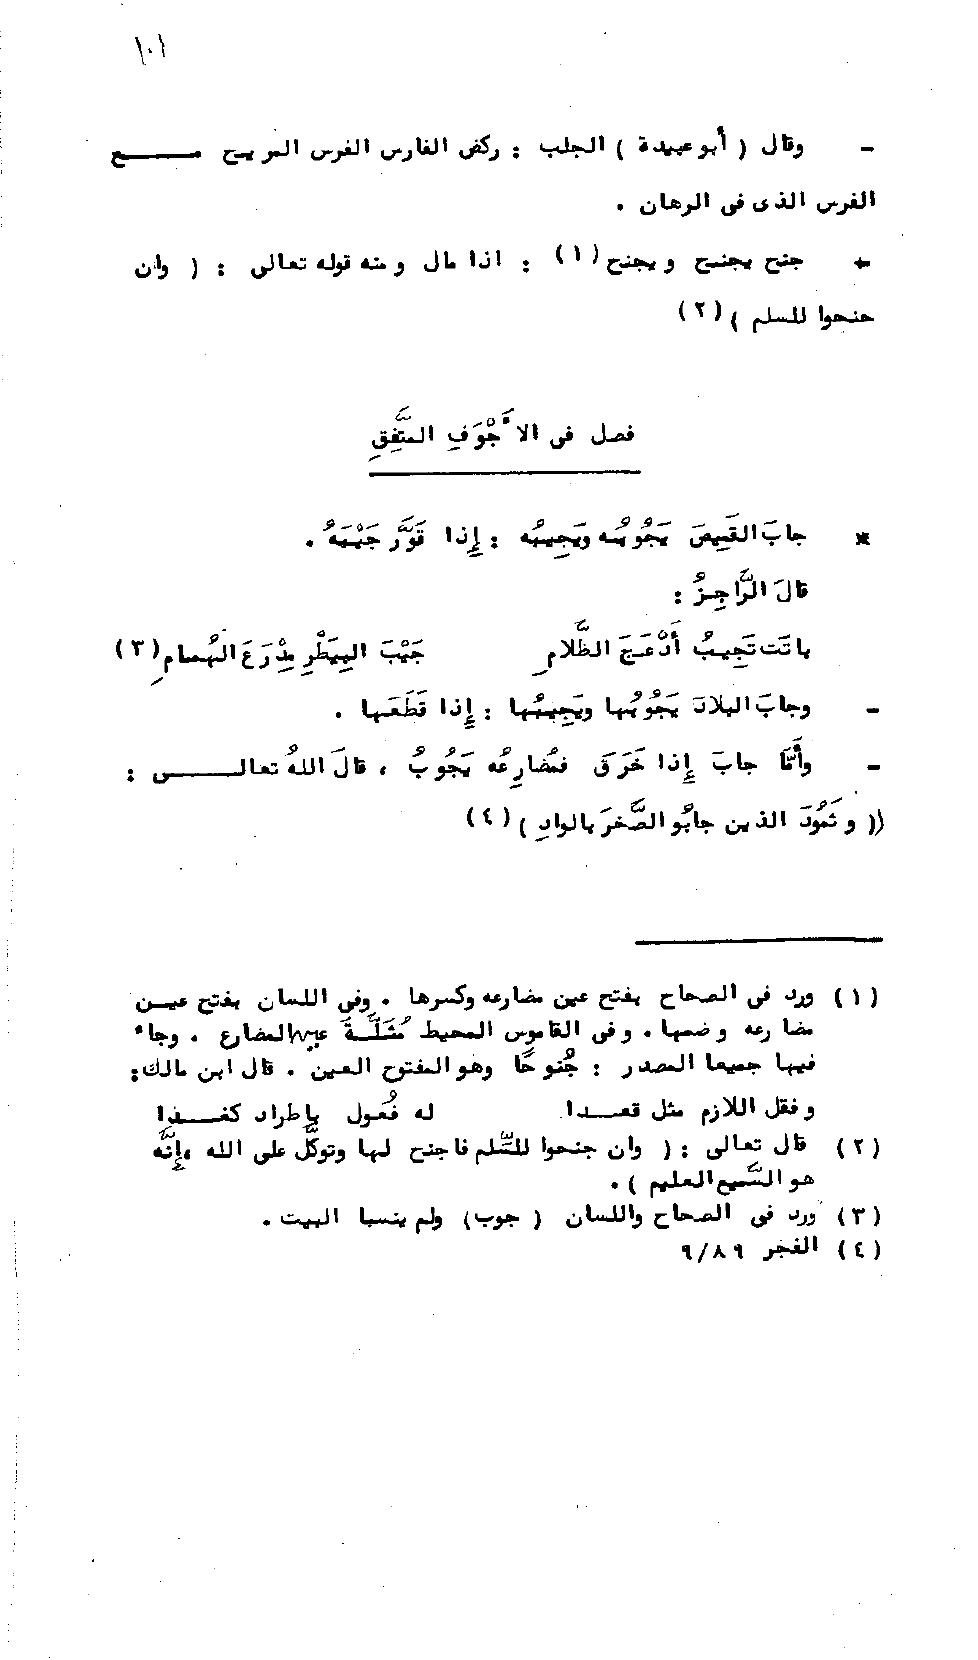 ١٠١
- وقال ( أبو عبيدة ) الجلب : ركض الفارس الفرس المريح مــــع
الفرس الذى فى الرهان .
* جنح يجنح ويجنح (١) : اذا مال ومنه قوله تعالى : ( وان
جنحوا للسلم ) (٢)
فصل فى الأَجْوَفِ المتَّفِقِ
* جابَ القَمِيصَ يَجُوبُه ويَجِيبُه : إِذا قَوَّرَ جَيْبَهُ .
قالَ الرَّاجِزُ :
باتَت تَجِيبُ أَدْعَجَ الظَّلامِ جَيْبَ البِيَطْرِ مِدْرَعَ الهُمامِ (٣)
- وجابَ البلادَ يَجُوبُها ويَجِيبُها : إِذا قَطَعَها .
- وأَمَّا جابَ إِذا خَرَقَ فمُضارِعُه يَجُوبُ ، قالَ اللهُ تعالـــى :
(( وثَمُودَ الذين جابُو الصَّخرَ بالوادِ ) (٤)
(١) ورد فى الصحاح بفتح عين مضارعه وكسرها . وفى اللسان بفتح عيـن
مضارعه وضمها . وفى القاموس المحيط مُثَلَّثَةَ عين المضارع . وجاء
فيها جميعا المصدر : جُنوحًا وهو المفتوح العين . قال ابن مالك :
وفقل اللازم مثل قعـــدا له فُعول باطراد كغـــدا
(٢) قال تعالى : ( وان جنحوا للسَّلم فاجنح لها وتوكَّل على الله ، إِنَّه
هو السَّميع العليم ) .
(٣) ورد فى الصحاح واللسان ( جوب) ولم ينسبا البيت .
(٤) الفجر ٩/٨٩